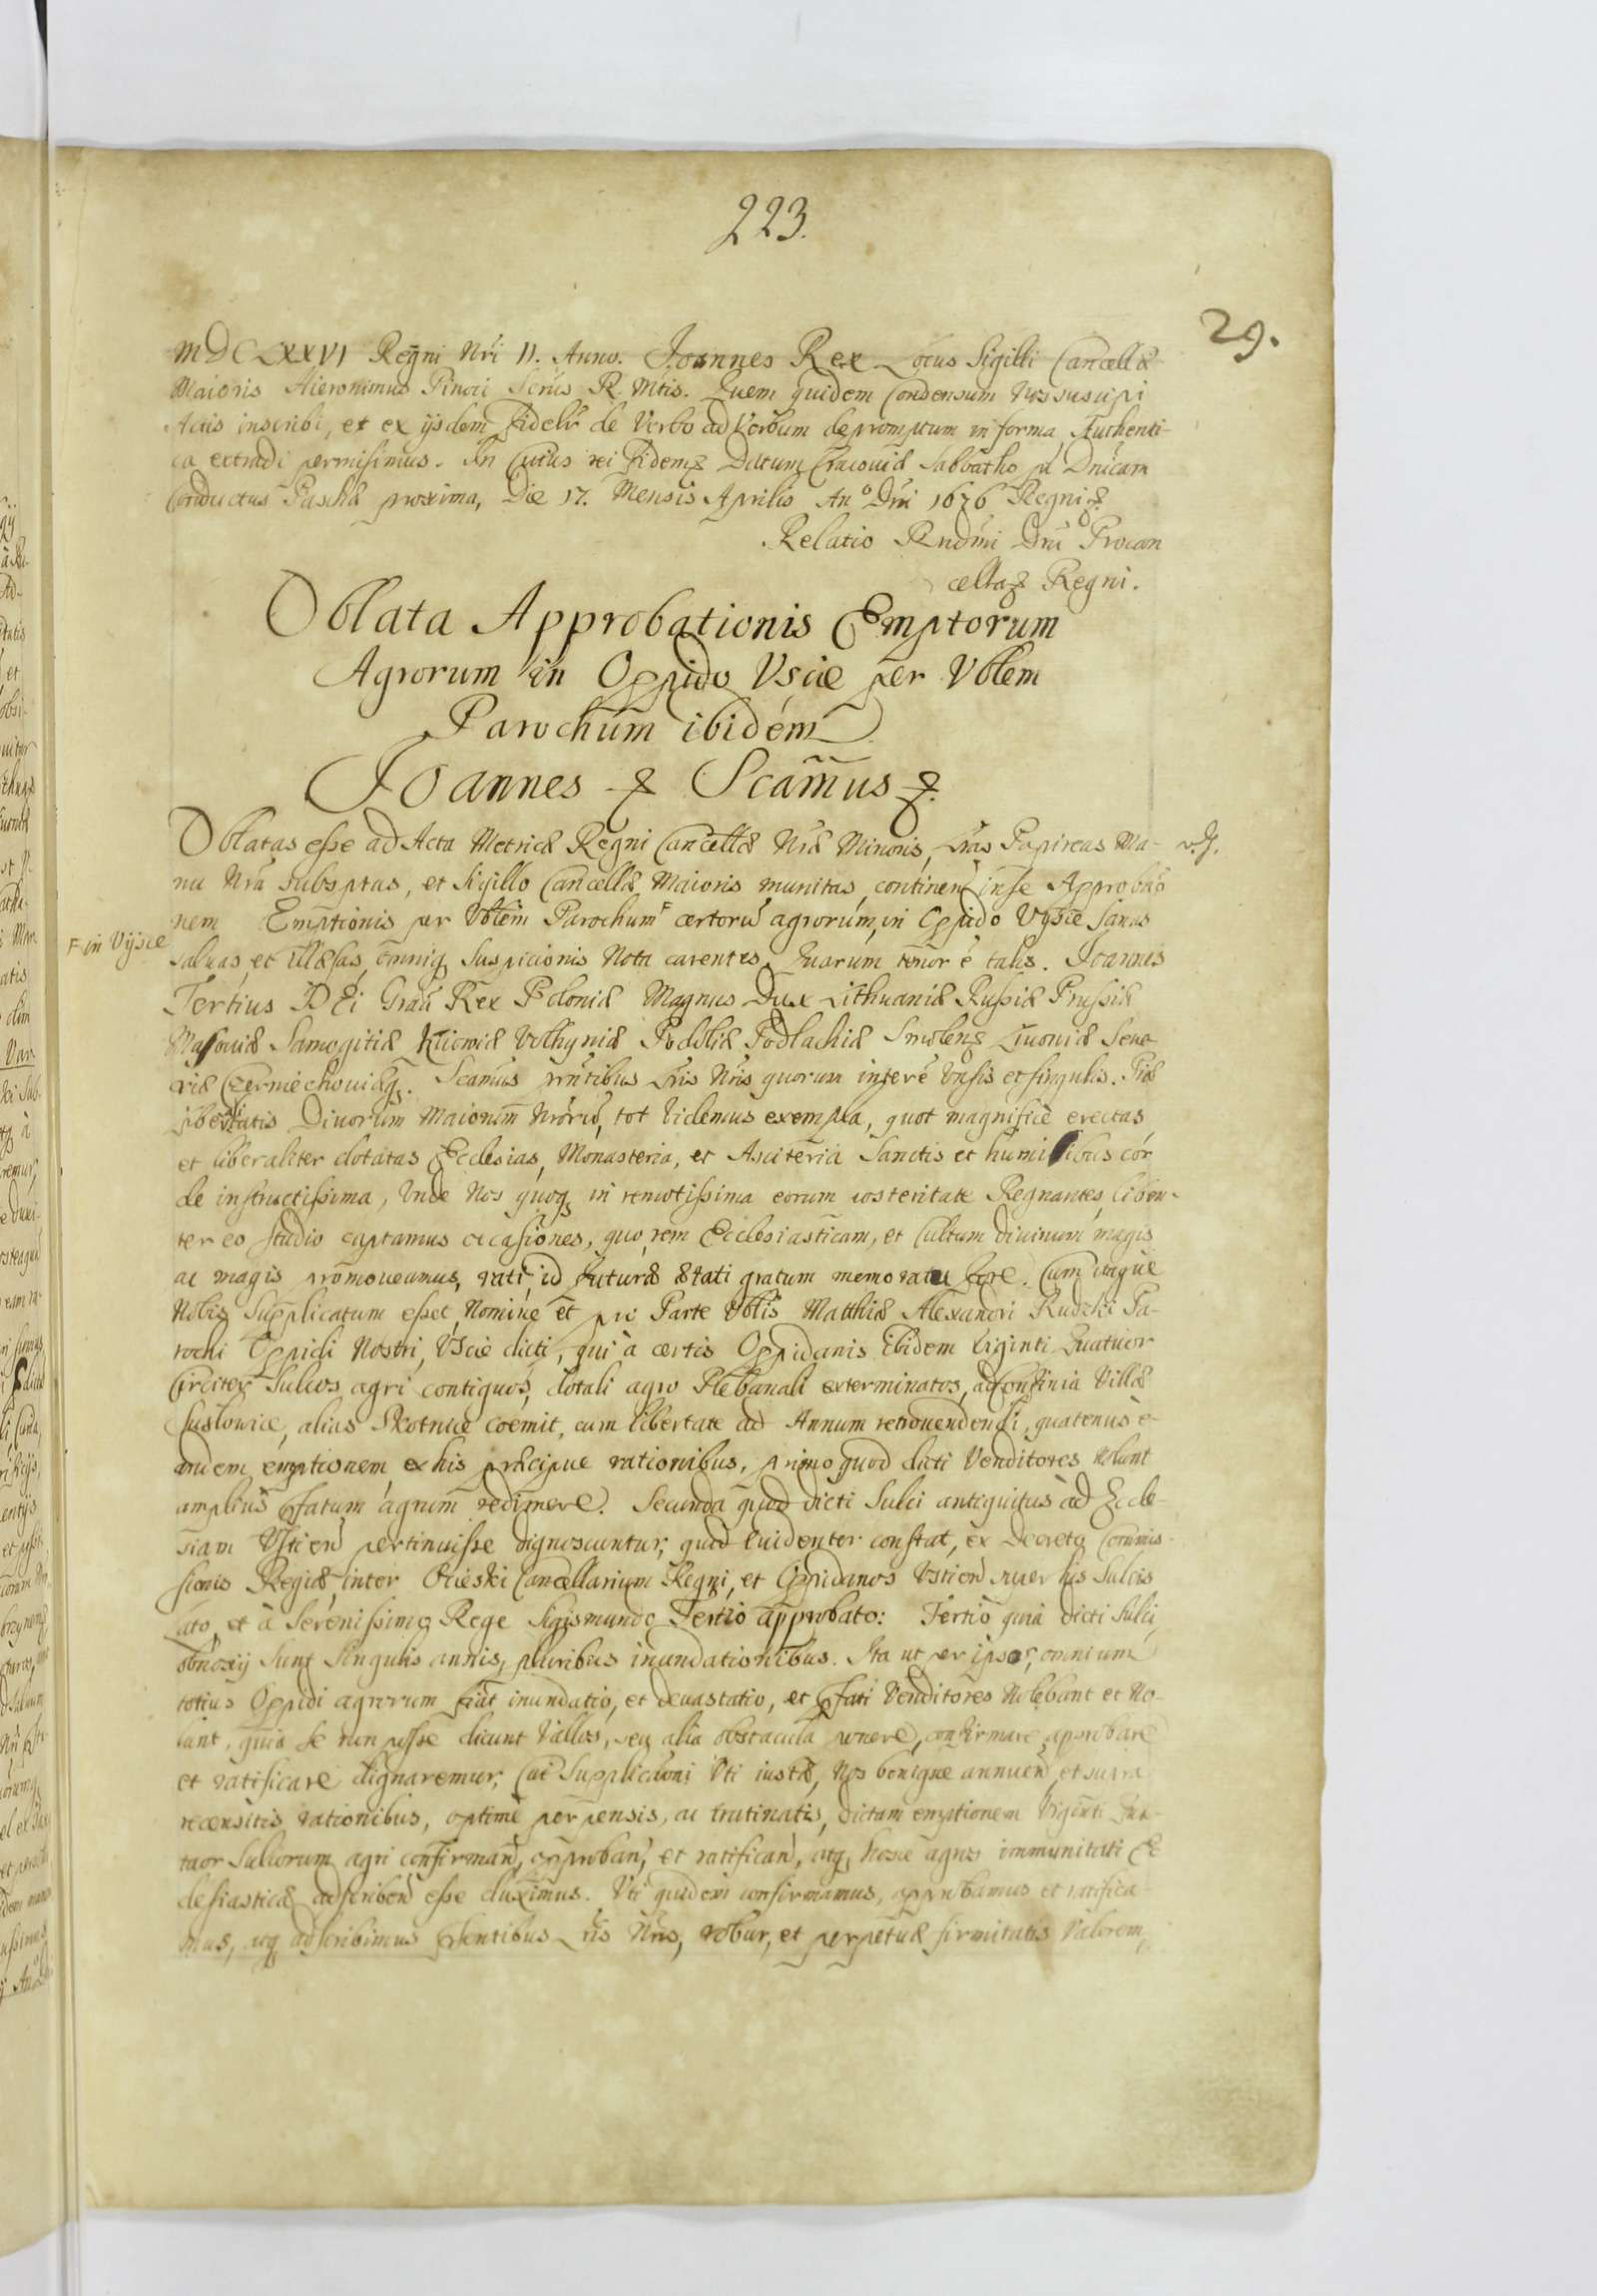 223.
29.
MDCLXXVI Regni Nri II. Anno. Joannes Rex Locus Sigilli Cancellæ
Maioris Hieronimus Pinoci Scrius R. Mtis. Quem quidem Condensum Nos suscipi
Actis inscribi, et ex ijsdem Fidelr de Verbo ad Verbum depromptum in forma Authenti-
ca extradi permisimus. In Cuius rei Fidem Datum Cracoviæ Sabbatho Dnicam
Conductus Paschæ proxima, Die 17. Mensis Aprilis Ano Dni 1676 Regni
Relatio Rndmi Dni Procan
cellar Regni.
Oblata Approbationis Emptorum
Agrorum in Oppido Uscie per Vblem
Parochum ibidem
Joannes Scamus
Oblatas esse ad Acta Metricæ Regni Cancellæ Nræ Minoris, Lras Papireas Ma-
nu Nra subsptas, et Sigillo Cancellæ Maioris munitas, continen in se Approbao
nem Emptionis per Vblem Parochum F certoru agrorum, in Oppido Vyscie Sanas
F in Vijscie
Salvas, et illæsas, omniq suspicionis Nota carentes. Quarum tenor e talis. Joannes
Tertius DEi Gratia Rex Poloniæ Magnus Dux Lithuaniæ Russiæ Prussiæ
Masoviæ Samogitiæ Kiioviæ Volhyniæ Podoliæ Podlachiæ Smolen Livoniæ Seve
riæ Czerniechoviæq. Scamus pntibus Lris Nris quorum interē Vnsis et singulis. Piæ
liberalitatis Divorum Maiorum Nroru, tot Videmus exempla, quot magnifice erectas
et liberaliter dotatas Ecclesias, Monasteria, et Asciteria Sanctis et humilibus cor
de instructissima, Vnde Nos quoq in remotissima eorum posteritate Regnantes, liben-
ter eo studio captamus occasiones, quo rem Ecclesiasticam, et Cultum divinum magis
ac magis promoveamus, rati id futuræ ætati gratum memoratu fore. Cum itaque
Nobis Supplicatum esset, Nomine et pro Parte Vblis Matthiæ Alexandri Rudzki Pa-
rochi Oppidi Nostri, Uscie dicti, qui à certis Oppidanis Ibidem Viginti Quatuor
Circiter Sulcos agri contiguos, dotali agro Plebanali exterminatos, ad Confinia Villæ
Susłowice, alias Skotnice coemit, cum libertate ad Annum retrovendendi, quatenus e-
andem emptionem ex his præcipue rationibus, primo quod dicti Venditores nolunt
amplius pfatum agrum redimere. Secunda quod dicti Sulci antiquitus ad Eccle-
siam Ustien pertinuisse dignoscuntur, quod evidenter constat, ex Decreto Commis-
sionis Regiæ inter Ocieski Cancellarium Regni, et Oppidanos Ustien super his Sulcis
Lato, et à Serenissimo Rege Sigismundo Tertio approbato: Tertio quia dicti Sulci,
obnoxij sunt singulis annis, pluribus inundationibus. Ita ut per ipsos, omnium
totius Oppidi agrorum fiat inundatio, et devastatio, et pfati Venditores Nolebant et No-
lunt, quia se non posse dicunt Vallos, seu alia obstacula ponere, confirmare, approbare
et ratificare dignaremur, Cui Supplicaoni Vti iustæ, Nos benigne annuen, et supra
recensitis rationibus, optime perpensis, ac trutinatis, dictam emptionem Viginti Qua-
tuor Sulcorum agri confirman, approban, et ratifican, atq hosce agros immunitati Ec
clesiasticæ adscriben esse duximus. Vti quidem confirmamus, approbamus et ratifica
mus, atq adscribimus præntibus Lris Nris, robur, et perpetuæ firmitatis Valorem,